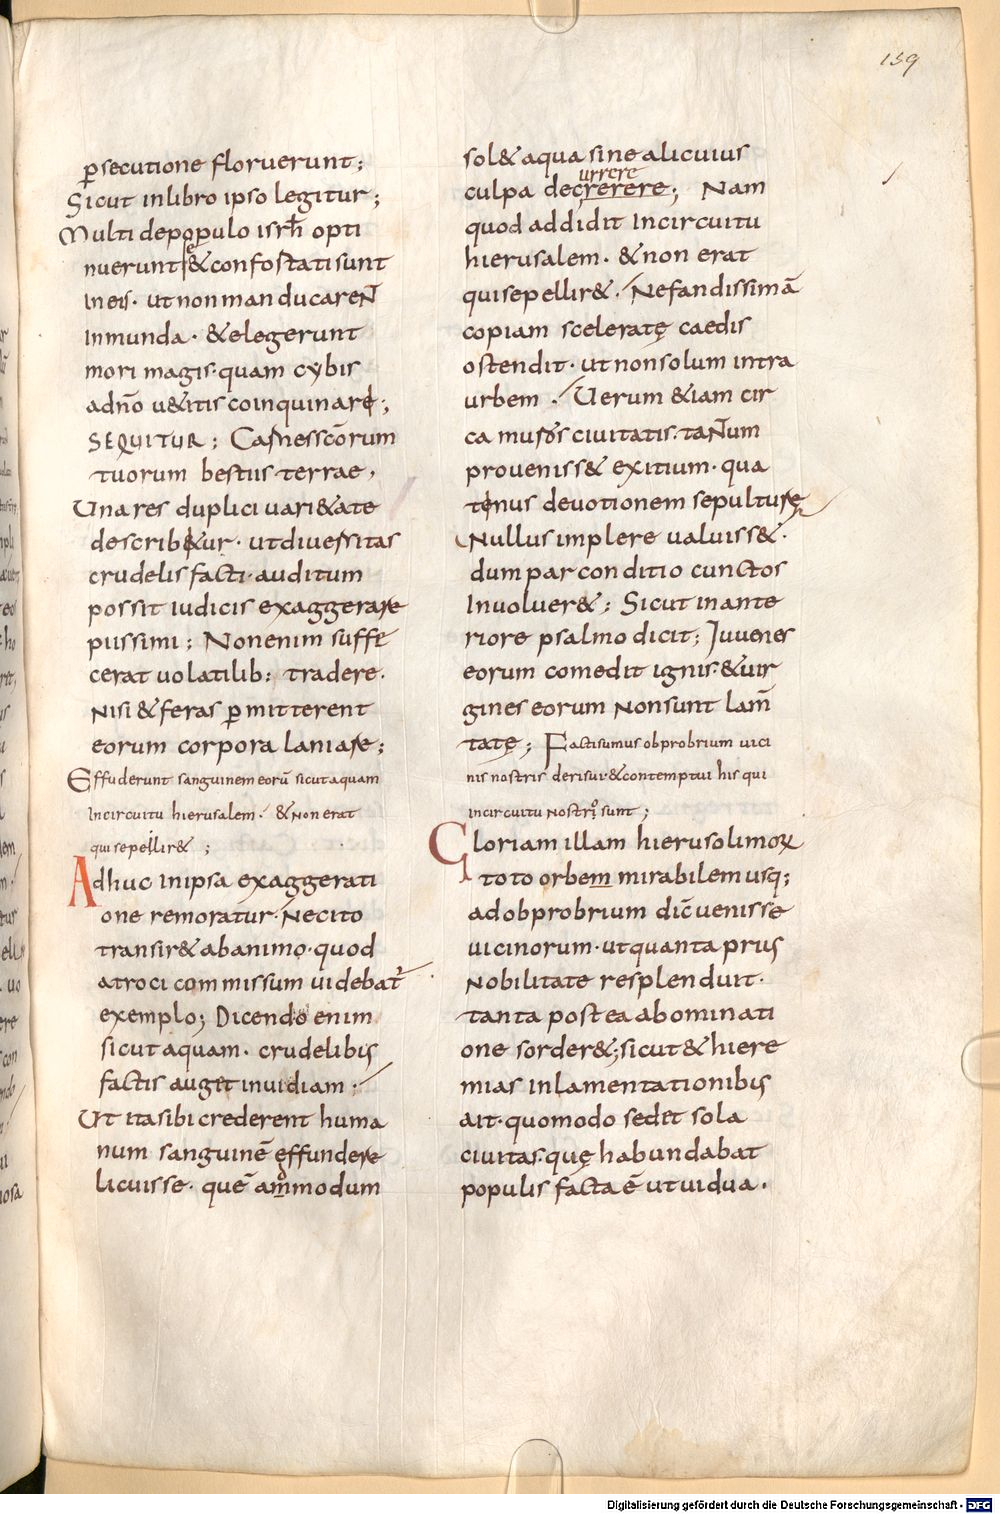 159
ꝑsecutione floruerunt;
Sicut inlibro ipso legitur;
Multi depopulo isrƚ opti
nuerunt se & confostatisunt
ineis· ut non manducareNt
Inmunda· & elegerunt
mori magis·quam cybis
adn̄o u&itis coinquinare;
SEQUITUR; Carnessc̄orum
tuorum bestiis terrae,
Una res duplici uari&ate
describitur· ut diuersitas
crudelis facti·auditum
possit iudicis exaggerare
piissimi; Non enim suffe
cerat uolatilib; tradere·
Nisi & feras ꝑmitterent
eorum corpora laniare;
Effuderunt sanguinem eorū sicut aquam
Incircuitu hierusalem· & non erat
qui sepellir& ;
Adhuc In ipsa exaggerati
one remoratur· Necito
transir& abanimo·quod
atroci commissum uidebat᷑
exemplo; Dicendo enim
sicut aquam· crudelibus
factis auget inuidiam·
Ut ita sibi crederent huma
num sanguinē ęffundere
licuisse· quē ammodum
sol& aqua sine alicuius
urrere
culpa decrerere; Nam
quod addidit Incircuitu
hierusalem· & non erat
qui sepellir&· Nefandissimā
copiam sceleratę caedis
ostendit· ut non solum intra
urbem· Uerum & iam cir
ca muros ciuitatis·taNtum
proueniss& exitium· qua
tenus deuotionem sepulturę
Nullus implere ualuiss&·
dum par conditio cunctos
Inuoluer&; Sicut in ante
riore psalmo dicit; Iuuenes
eorum comedit ignis·& uir
gines eorum Non sunt lam̄
tatę; Factisumus obprobrium uici
nis nostris derisui & contemptui his qui
incircuitu nostro sunt;
Gloriam illam hierusolimoꝝ
toto orbem mirabilem usq;
ad obprobrium dic̄ uenisse
uicinorum·ut quanta prius
Nobilitate resplenduit·
tanta postea abominati
one sorder&; sicut & hiere
mias in lamentationibus
ait·quomodo sedet sola
ciuitas·quę habundabat
populis facta ē ut uidua·
Digitalisierung gefördert durch die Deutsche Forschungsgemeinschaft - DFG